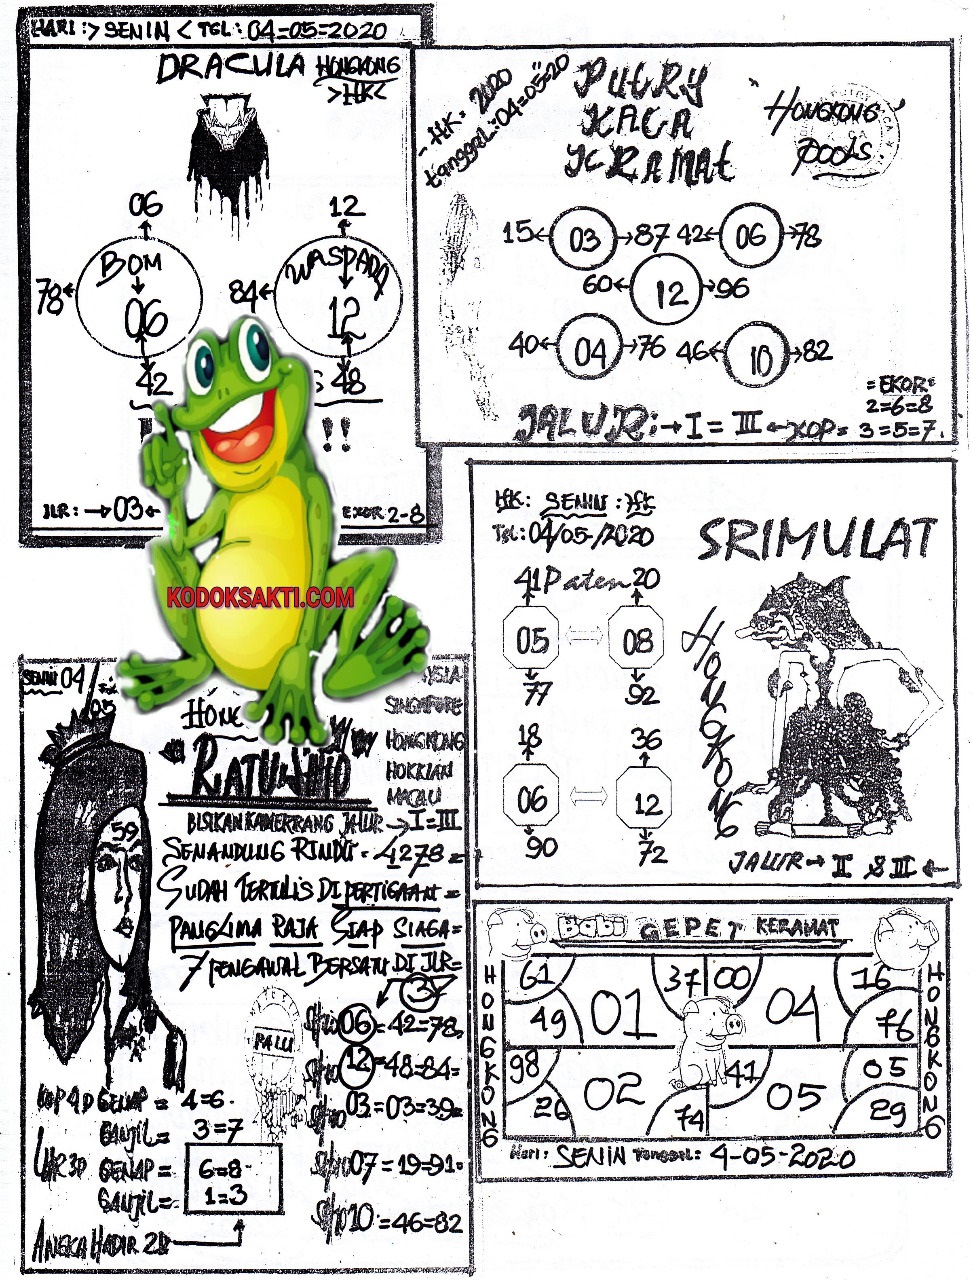 HARI:> SENIN < TGL: 04=05=2020
DRACULA HONGKONG
>HK<
06
12
BOM
WASPADA
78
06
84
12
42
48
!!
JLR: 03
EKOR 2-8
- HK: 2020
tanggal: 04=05=2020
PUTRY
KACA
KRAMAT
HONGKONG
POOLS
15 03 87 42 06 78
60 12 96
40 04 76 46 10 82
=EKOR=
2=6=8
JALUR: I = III KOP= 3=5=7.
KODOKSAKTI.COM
HK: SENIN: HK
TGL: 04/05-/2020
SRIMULAT
41 Paten 20
05 08
77 92
18 36
06 12
90 72
HONGKONG
JALUR II & III
SENIN 04
05
SINGAPORE
HONGKONG
HOKKIAN
MACAU
59
JALUR I=III
SENANDUNG RINDU = 4278=
SUDAH TERTULIS DI PERTIGAAN=
PANGLIMA RAJA SIAP SIAGA=
7 PENGAWAL BERSATU DI JLR=
3
PALU
06=42=78=
12=48=84=
03=03=39=
07=19=91=
10=46=82
KOP 4D GENAP = 4=6
GANJIL= 3=7
GENAP= 6=8
GANJIL= 1=3
ANEKA HADIR 2D
Babi GEPET KERAMAT
HONGKONG
HONGKONG
61 01 37 00 04 16
49 76
98 02 41 05 05
26 74 29
Hari: SENIN Tanggal: 4-05-2020